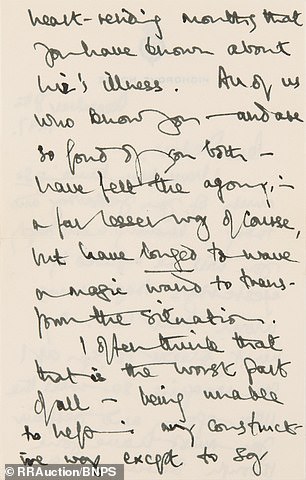 heart-rending months that
you have known about
Viv's illness. All of us
who know you – and are
so fond of you both –
have felt the agony, –
a far lesser way of course,
but have longed to wave
a magic wand to trans-
form the situation.
I often think that
that is the worst part
of all – being unable
to help in any construct-
ive way except to say
© RRAuction/BNPS